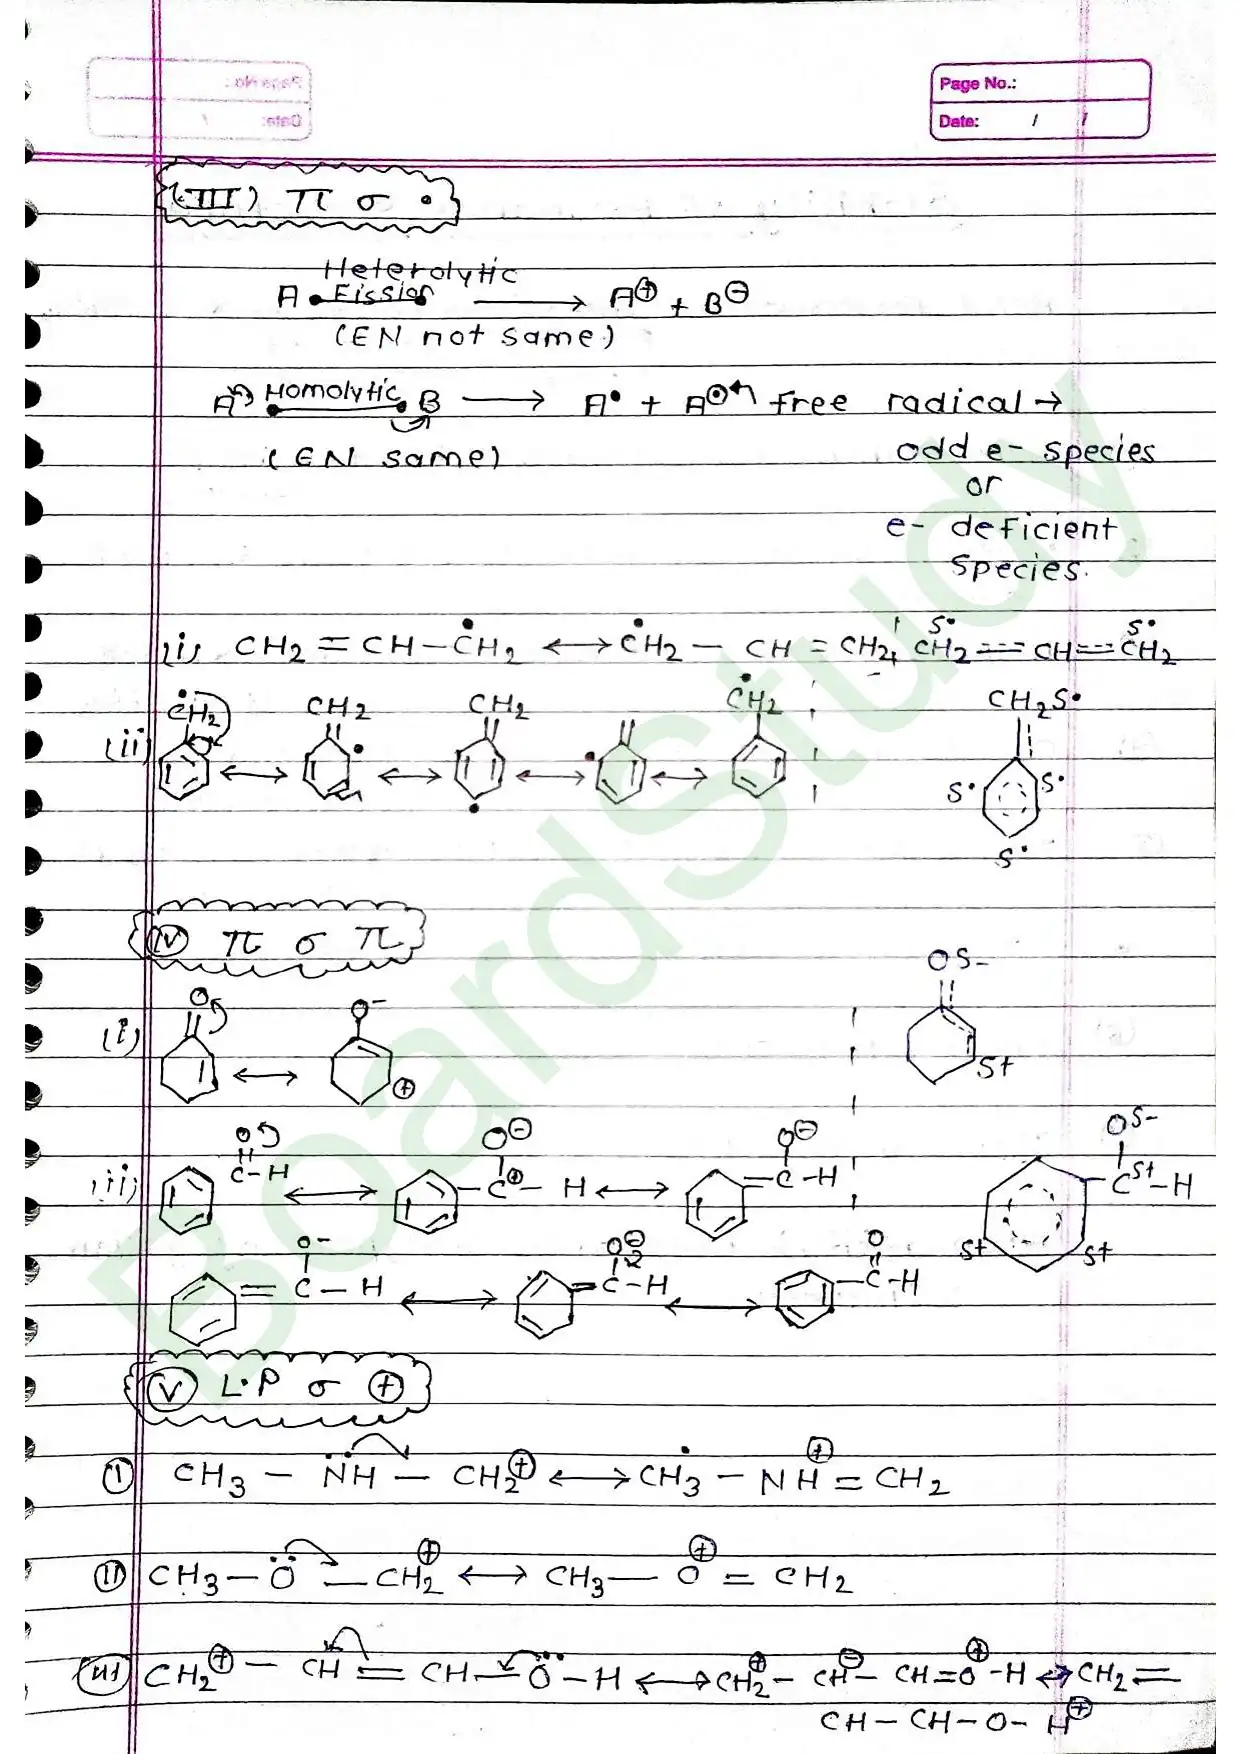 Page No.:
Date: / /
(III) π σ •
Heterolytic
A •Fission• ⟶ A⊕ + B⊖
(EN not same)
A Homolytic B ⟶ A• + A⊙ free radical →
(EN same)
odd e- species
or
e- deficient
species.
(i) CH2 = CH – ĊH2 ⟷ ĊH2 – CH = CH2, S• CH2 == CH == S• CH2
(ii) ĊH2 ⟷ CH2 • ⟷ CH2 • ⟷ • ⟷ ĊH2 CH2S• S• S• S•
(IV) π σ π
(i) O ⟷ O- ⊕ OS- S+
(ii) O C-H ⟷ O⊖ C⊕ – H ⟷ O⊖ = C-H OS- CS+-H S+ S+
O- = C – H ⟷ O⊖ = C-H ⟷ O C-H
(V) L.P σ ⊕
(I) CH3 – N̈H – CH2⊕ ⟷ CH3 – NH⊕ = CH2
(II) CH3 – Ö – CH2⊕ ⟷ CH3 – O⊕ = CH2
(III) CH2⊕ – CH = CH – Ö – H ⟷ CH2⊕ – CH⊖ – CH = O⊕ -H ⟷ CH2 =
CH – CH – O – H⊕
BoardStudy